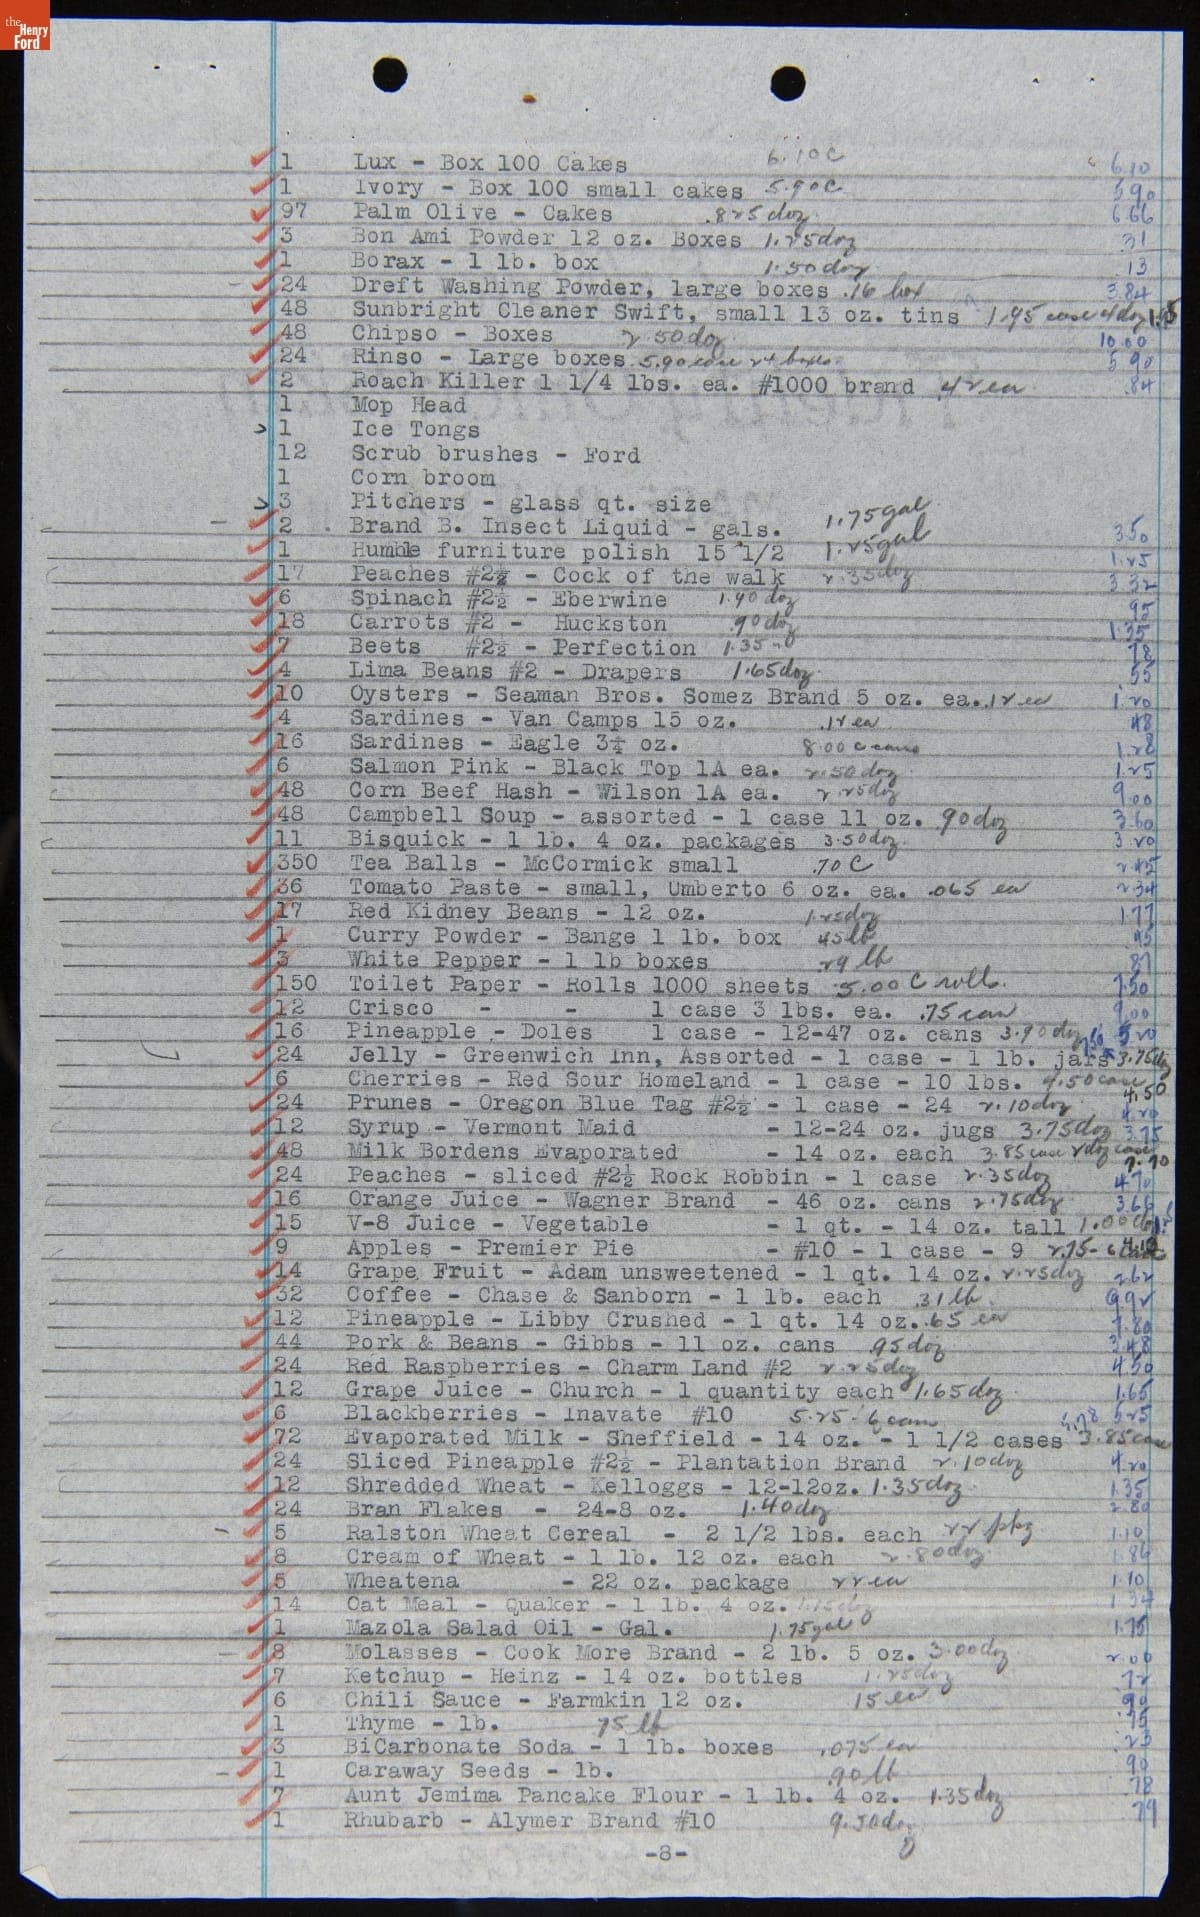 the Henry Ford
1 Lux - Box 100 Cakes 6.10 C 6.10
1 Ivory - Box 100 small cakes 5.90 C 5.90
97 Palm Olive - Cakes .825 doz. 6.66
3 Bon Ami Powder 12 oz. Boxes 1.25 doz .31
1 Borax - 1 lb. box 1.50 doz .13
24 Dreft Washing Powder, large boxes .16 box 3.84
48 Sunbright Cleaner Swift, small 13 oz. tins 1.95 case 4 doz
48 Chipso - Boxes 2.50 doz. 10.00
24 Rinso - Large boxes 5.90 case 24 boxes. 5.90
2 Roach Killer 1 1/4 lbs. ea. #1000 brand .42 ea .84
1 Mop Head
1 Ice Tongs
12 Scrub brushes - Ford
1 Corn broom
3 Pitchers - glass qt. size
2 Brand B. Insect Liquid - gals. 1.75 gal 3.50
1 Humble furniture polish 15 1/2 1.25 gal 1.25
17 Peaches #2½ - Cock of the walk 2.35 doz 3.32
6 Spinach #2½ - Eberwine 1.90 doz .95
18 Carrots #2 - Huckston .90 doz 1.35
7 Beets #2½ - Perfection 1.35 - .78
4 Lima Beans #2 - Drapers 1.65 doz. .55
10 Oysters - Seaman Bros. Somez Brand 5 oz. ea. .12 ea 1.20
4 Sardines - Van Camps 15 oz. .12 ea .48
16 Sardines - Eagle 3¼ oz. 8.00 C cans 1.28
6 Salmon Pink - Black Top 1A ea. 2.50 doz. 1.25
48 Corn Beef Hash - Wilson 1A ea. 2.25 doz 9.00
48 Campbell Soup - assorted - 1 case 11 oz. .90 doz 3.60
11 Bisquick - 1 lb. 4 oz. packages 3.50 doz. 3.20
350 Tea Balls - McCormick small .70 C 2.45
36 Tomato Paste - small, Umberto 6 oz. ea. .065 ea 2.34
17 Red Kidney Beans - 12 oz. 1.25 doz 1.77
1 Curry Powder - Bange 1 lb. box 45 lb .45
3 White Pepper - 1 lb boxes 29 lb .87
150 Toilet Paper - Rolls 1000 sheets 5.00 C rolls. 7.50
12 Crisco - - 1 case 3 lbs. ea. .75 can 9.00
16 Pineapple - Doles 1 case - 12-47 oz. cans 3.90 doz 5.20
24 Jelly - Greenwich Inn, Assorted - 1 case - 1 lb. jars 3.75 doz 7.50
6 Cherries - Red Sour Homeland - 1 case - 10 lbs. 4.50 case 4.50
24 Prunes - Oregon Blue Tag #2½ - 1 case - 24 2.10 doz 4.20
12 Syrup - Vermont Maid - 12-24 oz. jugs 3.75 doz 3.75
48 Milk Bordens Evaporated - 14 oz. each 3.85 case 2 doz case 7.70
24 Peaches - sliced #2½ Rock Robbin - 1 case 2.35 doz 4.70
16 Orange Juice - Wagner Brand - 46 oz. cans 2.75 doz 3.66
15 V-8 Juice - Vegetable - 1 qt. - 14 oz. tall 1.00
9 Apples - Premier Pie - #10 - 1 case - 9 2.75 - 6
14 Grape Fruit - Adam unsweetened - 1 qt. 14 oz. 2.25 doz 2.62
32 Coffee - Chase & Sanborn - 1 lb. each .31 lb. 9.92
12 Pineapple - Libby Crushed - 1 qt. 14 oz. .65 ea 7.80
44 Pork & Beans - Gibbs - 11 oz. cans .95 doz 3.48
24 Red Raspberries - Charm Land #2 2.25 doz 4.50
12 Grape Juice - Church - 1 quantity each 1.65 doz. 1.65
6 Blackberries - Inavate #10 5.25 - 6 cans 5.25
72 Evaporated Milk - Sheffield - 14 oz. - 1 1/2 cases 5.78 3.85 case
24 Sliced Pineapple #2½ - Plantation Brand 2.10 doz 4.20
12 Shredded Wheat - Kelloggs - 12-12oz. 1.35 doz. 1.35
24 Bran Flakes - 24-8 oz. 1.40 doz 2.80
5 Ralston Wheat Cereal - 2 1/2 lbs. each 22 pkg 1.10
8 Cream of Wheat - 1 lb. 12 oz. each 2.80 doz 1.86
5 Wheatena - 22 oz. package 22 ea 1.10
14 Oat Meal - Quaker - 1 lb. 4 oz. 1.15 doz 1.34
1 Mazola Salad Oil - Gal. 1.75 gal 1.75
8 Molasses - Cook More Brand - 2 lb. 5 oz. 3.00 doz 2.00
7 Ketchup - Heinz - 14 oz. bottles 1.25 doz .72
6 Chili Sauce - Farmkin 12 oz. 15 ea .90
1 Thyme - lb. 75 lb .75
3 BiCarbonate Soda - 1 lb. boxes .075 ea .23
1 Caraway Seeds - lb. .90 lb .90
7 Aunt Jemima Pancake Flour - 1 lb. 4 oz. 1.35 doz .78
1 Rhubarb - Alymer Brand #10 9.50 doz. .79
-8-